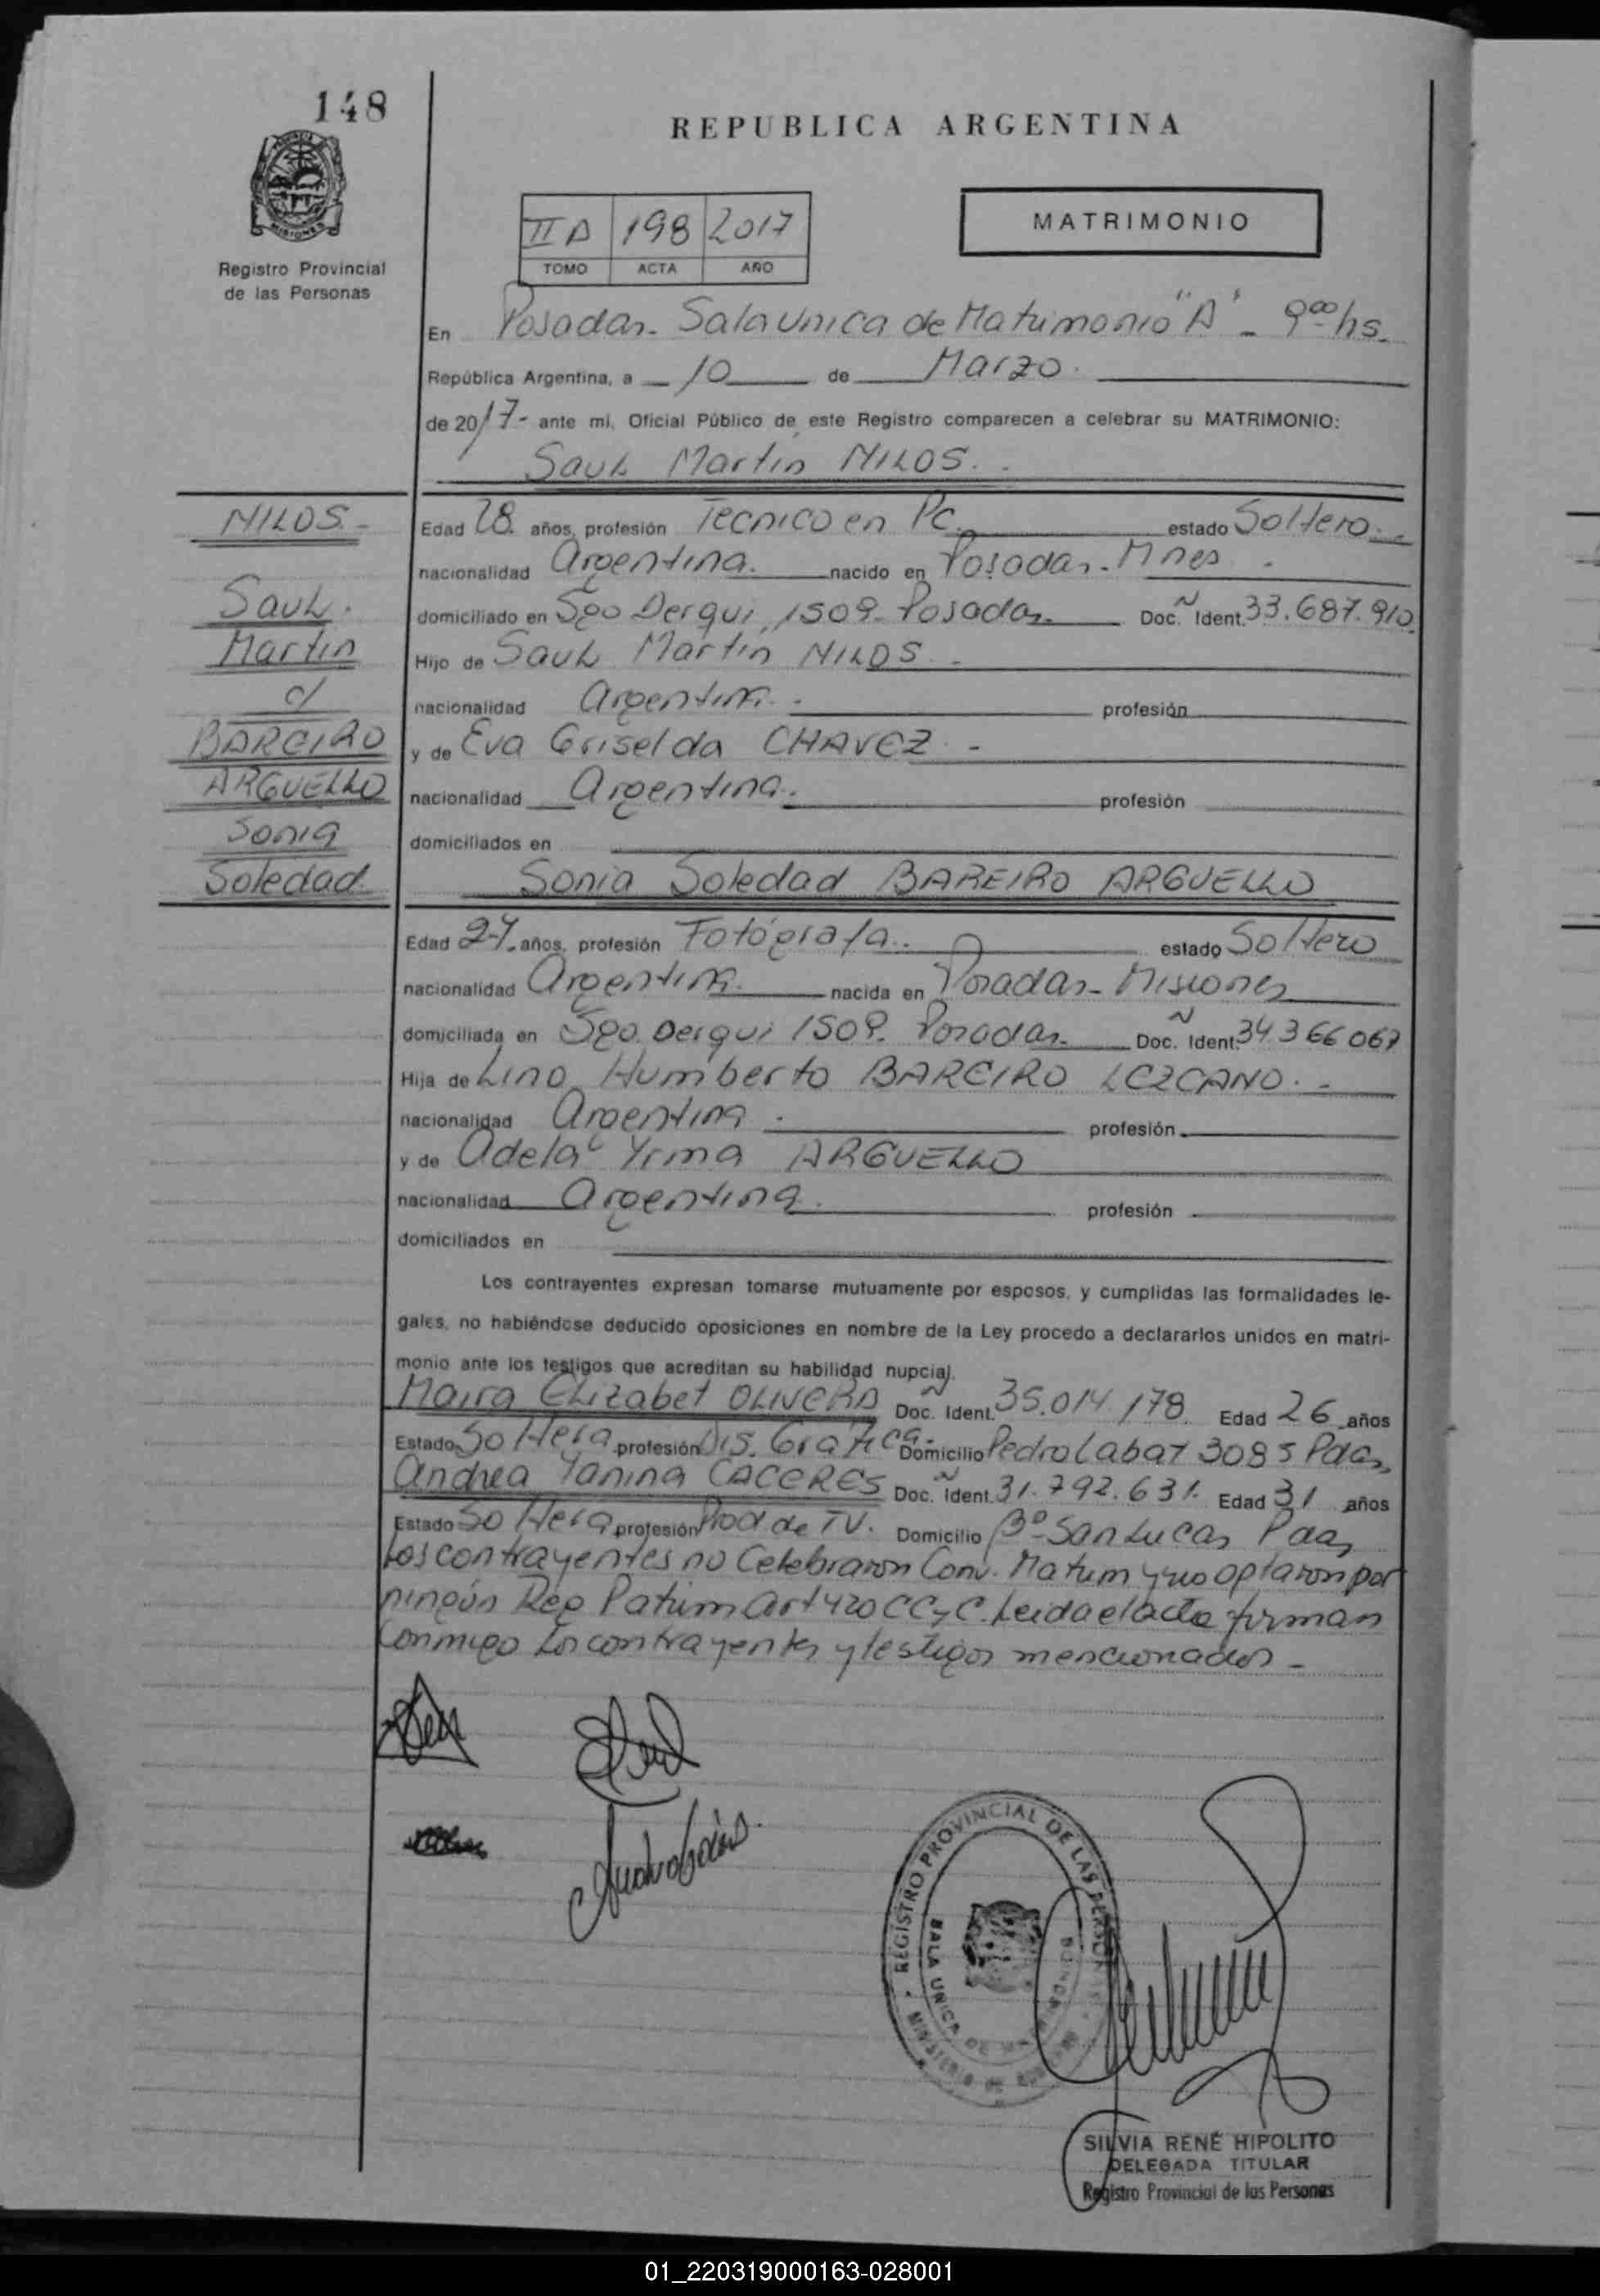 148
REPUBLICA ARGENTINA
MATRIMONIO
II A 198 2017
TOMO ACTA AÑO
MISIONES
Registro Provincial
de las Personas
En Posadas- Sala Unica de Matrimonio "A" - 9 00 hs.
República Argentina, a 10 de Marzo.
de 2017- ante mí, Oficial Público de este Registro comparecen a celebrar su MATRIMONIO:
Saul Martin MILOS.
MILOS.-
Saul.
Martin
c/
BAREIRO
ARGUELLO
Sonia
Soledad
Edad 28. años, profesión Tecnico en Pc. estado Soltero.
nacionalidad Argentina. nacido en Posadas-Mnes.
domiciliado en Sgo Derqui 1509- Posadas. Doc. Ident. 33.687.910
Hijo de Saul Martin MILOS.-
nacionalidad Argentina. profesión
y de Eva Griselda CHAVEZ.-
nacionalidad Argentina. profesión
domiciliados en
Sonia Soledad BAREIRO ARGUELLO
Edad 27. años, profesión Fotógrafa.. estado Soltero
nacionalidad Argentina. nacida en Posadas- Misiones
domiciliada en Sgo. Derqui 1509. Posadas. Doc. Ident. 34.366 067
Hija de Lino Humberto BAREIRO LEZCANO.-
nacionalidad Argentina. profesión
y de Adela Yrma ARGUELLO
nacionalidad Argentina. profesión
domiciliados en
Los contrayentes expresan tomarse mutuamente por esposos, y cumplidas las formalidades le-
gales, no habiéndose deducido oposiciones en nombre de la Ley procedo a declararlos unidos en matri-
monio ante los testigos que acreditan su habilidad nupcial.
Maira Elizabet OLIVERA Doc. Ident. 35.014.178. Edad 26 años
Estado Soltera profesión Dis. Grafica- Domicilio Pedro Labat 3085 Pdas
Andrea Yanina CACERES Doc. Ident. 31.792.631. Edad 31 años
Estado Soltera profesión Prod de TV. Domicilio Bº San Lucas Pdas
Los contrayentes no Celebraron Conv. Matrim y no optaron por
ningún Reg Patrim Art 420 CCyC. Leida el acta firman
conmigo los contrayentes y testigos mencionados-
REGISTRO PROVINCIAL DE LAS PERSONAS
SALA UNICA DE
MINISTERIO DE
SILVIA RENÉ HIPOLITO
DELEGADA TITULAR
Registro Provincial de las Personas
01_220319000163-028001